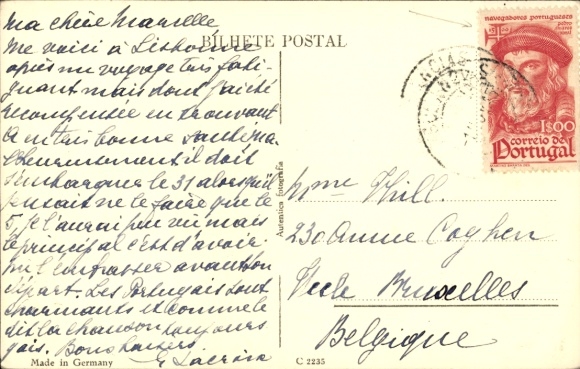 BILHETE POSTAL
Ma chère Marcelle
Me voici à Lisbonne
après un voyage très fati-
guant mais dont j'ai été
récompensée en trouvant
en très bonne santé
Malheureusement il doit
s'embarquer le 31 alors qu'il
pensait ne le faire que le
5. Je l'aurai peu vu mais
le principal c'est d'avoir
pu l'embrasser avant son
départ. Les Portugais sont
charmants et comme le
dit la chanson toujours
gais. Bons baisers
Lacroix
Made in Germany
Autentica fotografia
C 2235
navegadores portugueses
pedro
1$00
correio de
Portugal
Mme Thill
230 Avenue Coghen
Uccle Bruxelles
Belgique